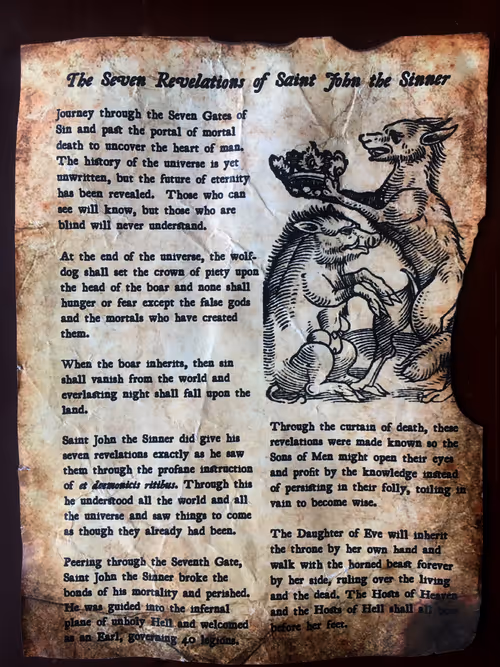 The Seven Revelations of Saint John the Sinner
Journey through the Seven Gates of
Sin and past the portal of mortal
death to uncover the heart of man.
The history of the universe is yet
unwritten, but the future of eternity
has been revealed. Those who can
see will know, but those who are
blind will never understand.
At the end of the universe, the wolf-
dog shall set the crown of piety upon
the head of the boar and none shall
hunger or fear except the false gods
and the mortals who have created
them.
When the boar inherits, then sin
shall vanish from the world and
everlasting night shall fall upon the
land.
Saint John the Sinner did give his
seven revelations exactly as he saw
them through the profane instruction
of et daemonicis ritibus. Through this
he understood all the world and all
the universe and saw things to come
as though they already had been.
Peering through the Seventh Gate,
Saint John the Sinner broke the
bonds of his mortality and perished.
He was guided into the infernal
plane of unholy Hell and welcomed
as an Earl, governing 40 legions.
Through the curtain of death, these
revelations were made known so the
Sons of Men might open their eyes
and profit by the knowledge instead
of persisting in their folly, toiling in
vain to become wise.
The Daughter of Eve will inherit
the throne by her own hand and
walk with the horned beast forever
by her side, ruling over the living
and the dead. The Hosts of Heaven
and the Hosts of Hell shall all bow
before her feet.